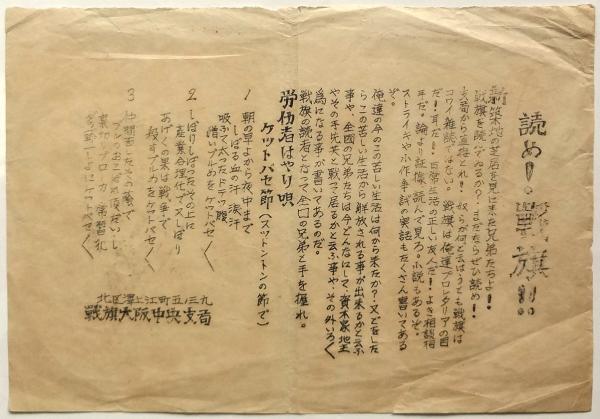 読め！戦旗!!
新築地の芝居を見に来た兄弟たちよ！
戦旗を読んでゐるか？まだならぜひ読め！
支局から直接とれ！奴らが何と云はうとも戦旗は
コワイ雑誌ではない。戦旗は俺達プロレタリアの目
だ！耳だ！日常生活の正しい友人だ！よき相談相
手だ。論より証拠読んで見ろ。小説もあるぞ。
ストライキや小作争議の実話もたくさん書いてある
ぞ。
俺達の今のこの苦しい生活は何から来たか？又どをした
らこの苦しい生活から解放される事が出来るかと云ふ
事や、全国の兄弟たちは今どんなにして、資本家地主
やその手先共と戦って居るかと云ふ事や、その外いろ〱
為になる事が書いてあるのだ。
戦旗の読者となって全国の兄弟と手を握れ。
労働者はやり唄
ケットバセ節（スットントンの節で）
1 朝の早よから夜中まで
しぼる血の汗 涙汗
吸ふて太ったドテッ腹
憎いブルめをケットバセ〱
2 しぼりしぼったその上に
産業合理化で又しぼり
あげくの果は戦争で
殺すブルめをケットバセ〱
3 仲間
ブル
裏切 ブロカ
ケットバセ〱
北区澤上江町五ノ三九
戦旗大阪中央支局